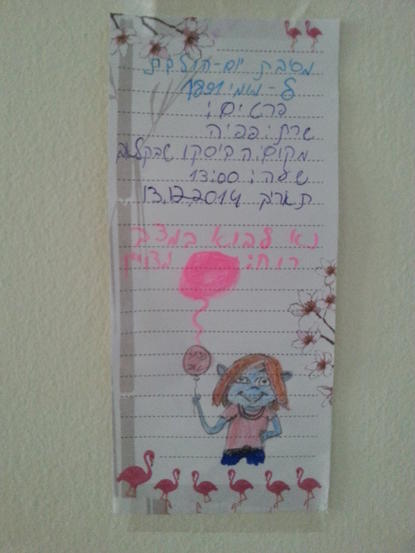 מסבת יום-הולדת
ל-מומי ופפי
פרטים:
שרת: פפיה
מקום: הביסקו שבקלוב
שעה: 13:00
תאריך 13.12.2014
נא לבוא במצב
רוח: מצויין